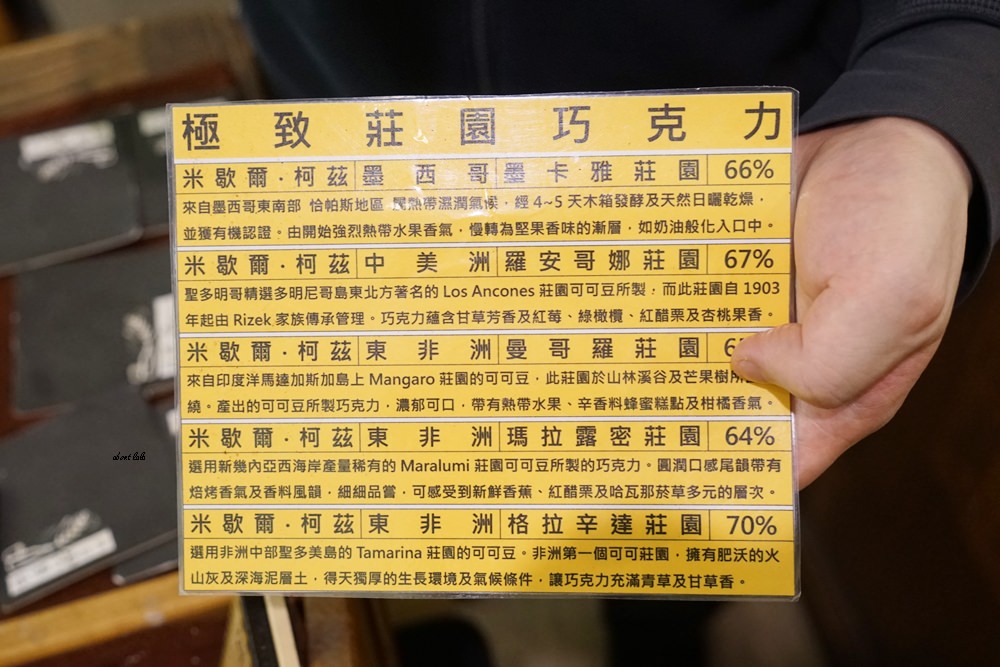 極致莊園巧克力
米歇爾·柯茲 墨西哥 墨卡雅莊園 66%
來自墨西哥東南部 恰帕斯地區 屬熱帶濕潤氣候，經 4~5 天木箱發酵及天然日曬乾燥，
並獲有機認證。由開始強烈熱帶水果香氣，慢轉為堅果香味的漸層，如奶油般化入口中。
米歇爾·柯茲 中美洲 羅安哥娜莊園 67%
聖多明哥精選多明尼哥島東北方著名的 Los Ancones 莊園可可豆所製；而此莊園自 1903
年起由 Rizek 家族傳承管理。巧克力蘊含甘草芳香及紅莓、綠橄欖、紅醋栗及杏桃果香。
米歇爾·柯茲 東非洲 曼哥羅莊園
來自印度洋馬達加斯加島上 Mangaro 莊園的可可豆，此莊園於山林溪谷及芒果樹所
繞。產出的可可豆所製巧克力，濃郁可口，帶有熱帶水果、辛香料蜂蜜糕點及柑橘香氣。
米歇爾·柯茲 東非洲 瑪拉露密莊園 64%
選用新幾內亞西海岸產量稀有的 Maralumi 莊園可可豆所製的巧克力。圓潤口感尾韻帶有
焙烤香氣及香料風韻，細細品嘗，可感受到新鮮香蕉、紅醋栗及哈瓦那菸草多元的層次。
米歇爾·柯茲 東非洲 格拉辛達莊園 70%
選用非洲中部聖多美島的 Tamarina 莊園的可可豆。非洲第一個可可莊園，擁有肥沃的火
山灰及深海泥層土，得天獨厚的生長環境及氣候條件，讓巧克力充滿青草及甘草香。